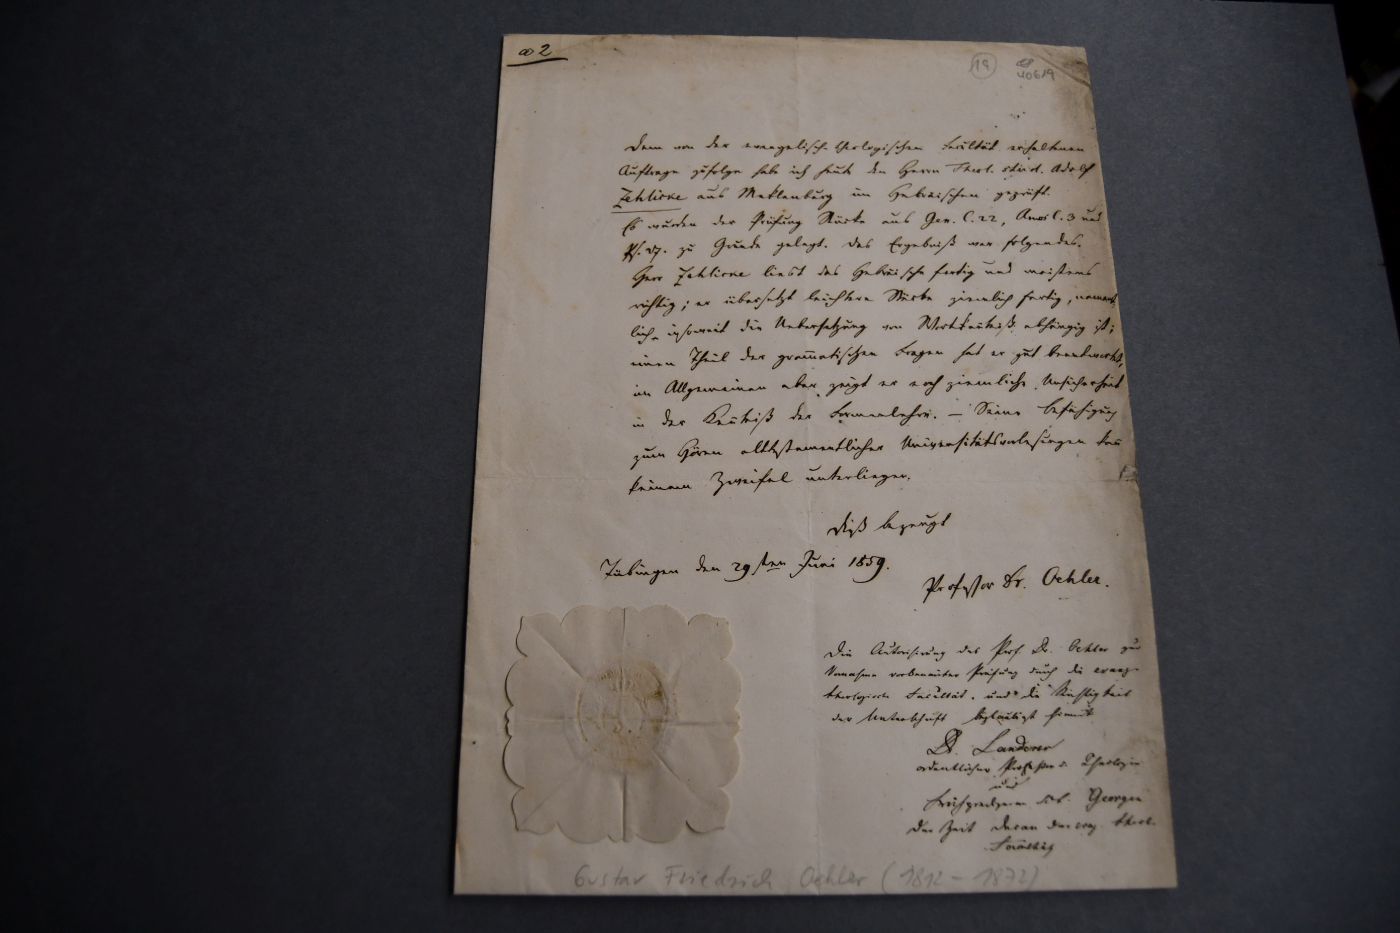 ad 2
19
40619
Dem von der evangelisch-theologischen Facultät erhaltenen
Auftrage zufolge habe ich heute den Herrn Theol. stud. Adolf
Zehlicke aus Meklenburg im Hebräischen geprüft.
Es wurden der Prüfung Stücke aus Gen. C. 22, Amos C. 3 und
Ps. zu Grunde gelegt. Das Ergebniß war folgendes.
Herr Zehlicke liest das Hebräische fertig und meistens
richtig; er übersetzt leichtere Stücke ziemlich fertig, nament-
lich insoweit die Uebersetzung von Wortkentniß abhängig ist;
einen Theil der grammatischen Fragen hat er gut beantwortet,
im Allgemeinen aber zeigt er noch ziemliche Unsicherheit
in der Kentniß der Formenlehre. — Seine Befähigung
zum Hören alttestamentlicher Universitätsvorlesungen kan
keinem Zweifel unterliegen.
Dieß bezeugt
Tübingen den 29sten Juni 1859.
Professor Dr. Oehler.
Die Autorisirung des Prof. Dr. Oehler zur
Vornahme vorbenannter Prüfung durch die evang.
theologische Facultät, und die Richtigkeit
der Unterschrift beglaubigt hiemit
Dr. Landerer
ordentlicher Professor d. Theologie
und
Frühprediger St. Georgen
der Zeit Decan der evg. theol.
Facultät
Gustav Friedrich Oehler (1812 - 1872)